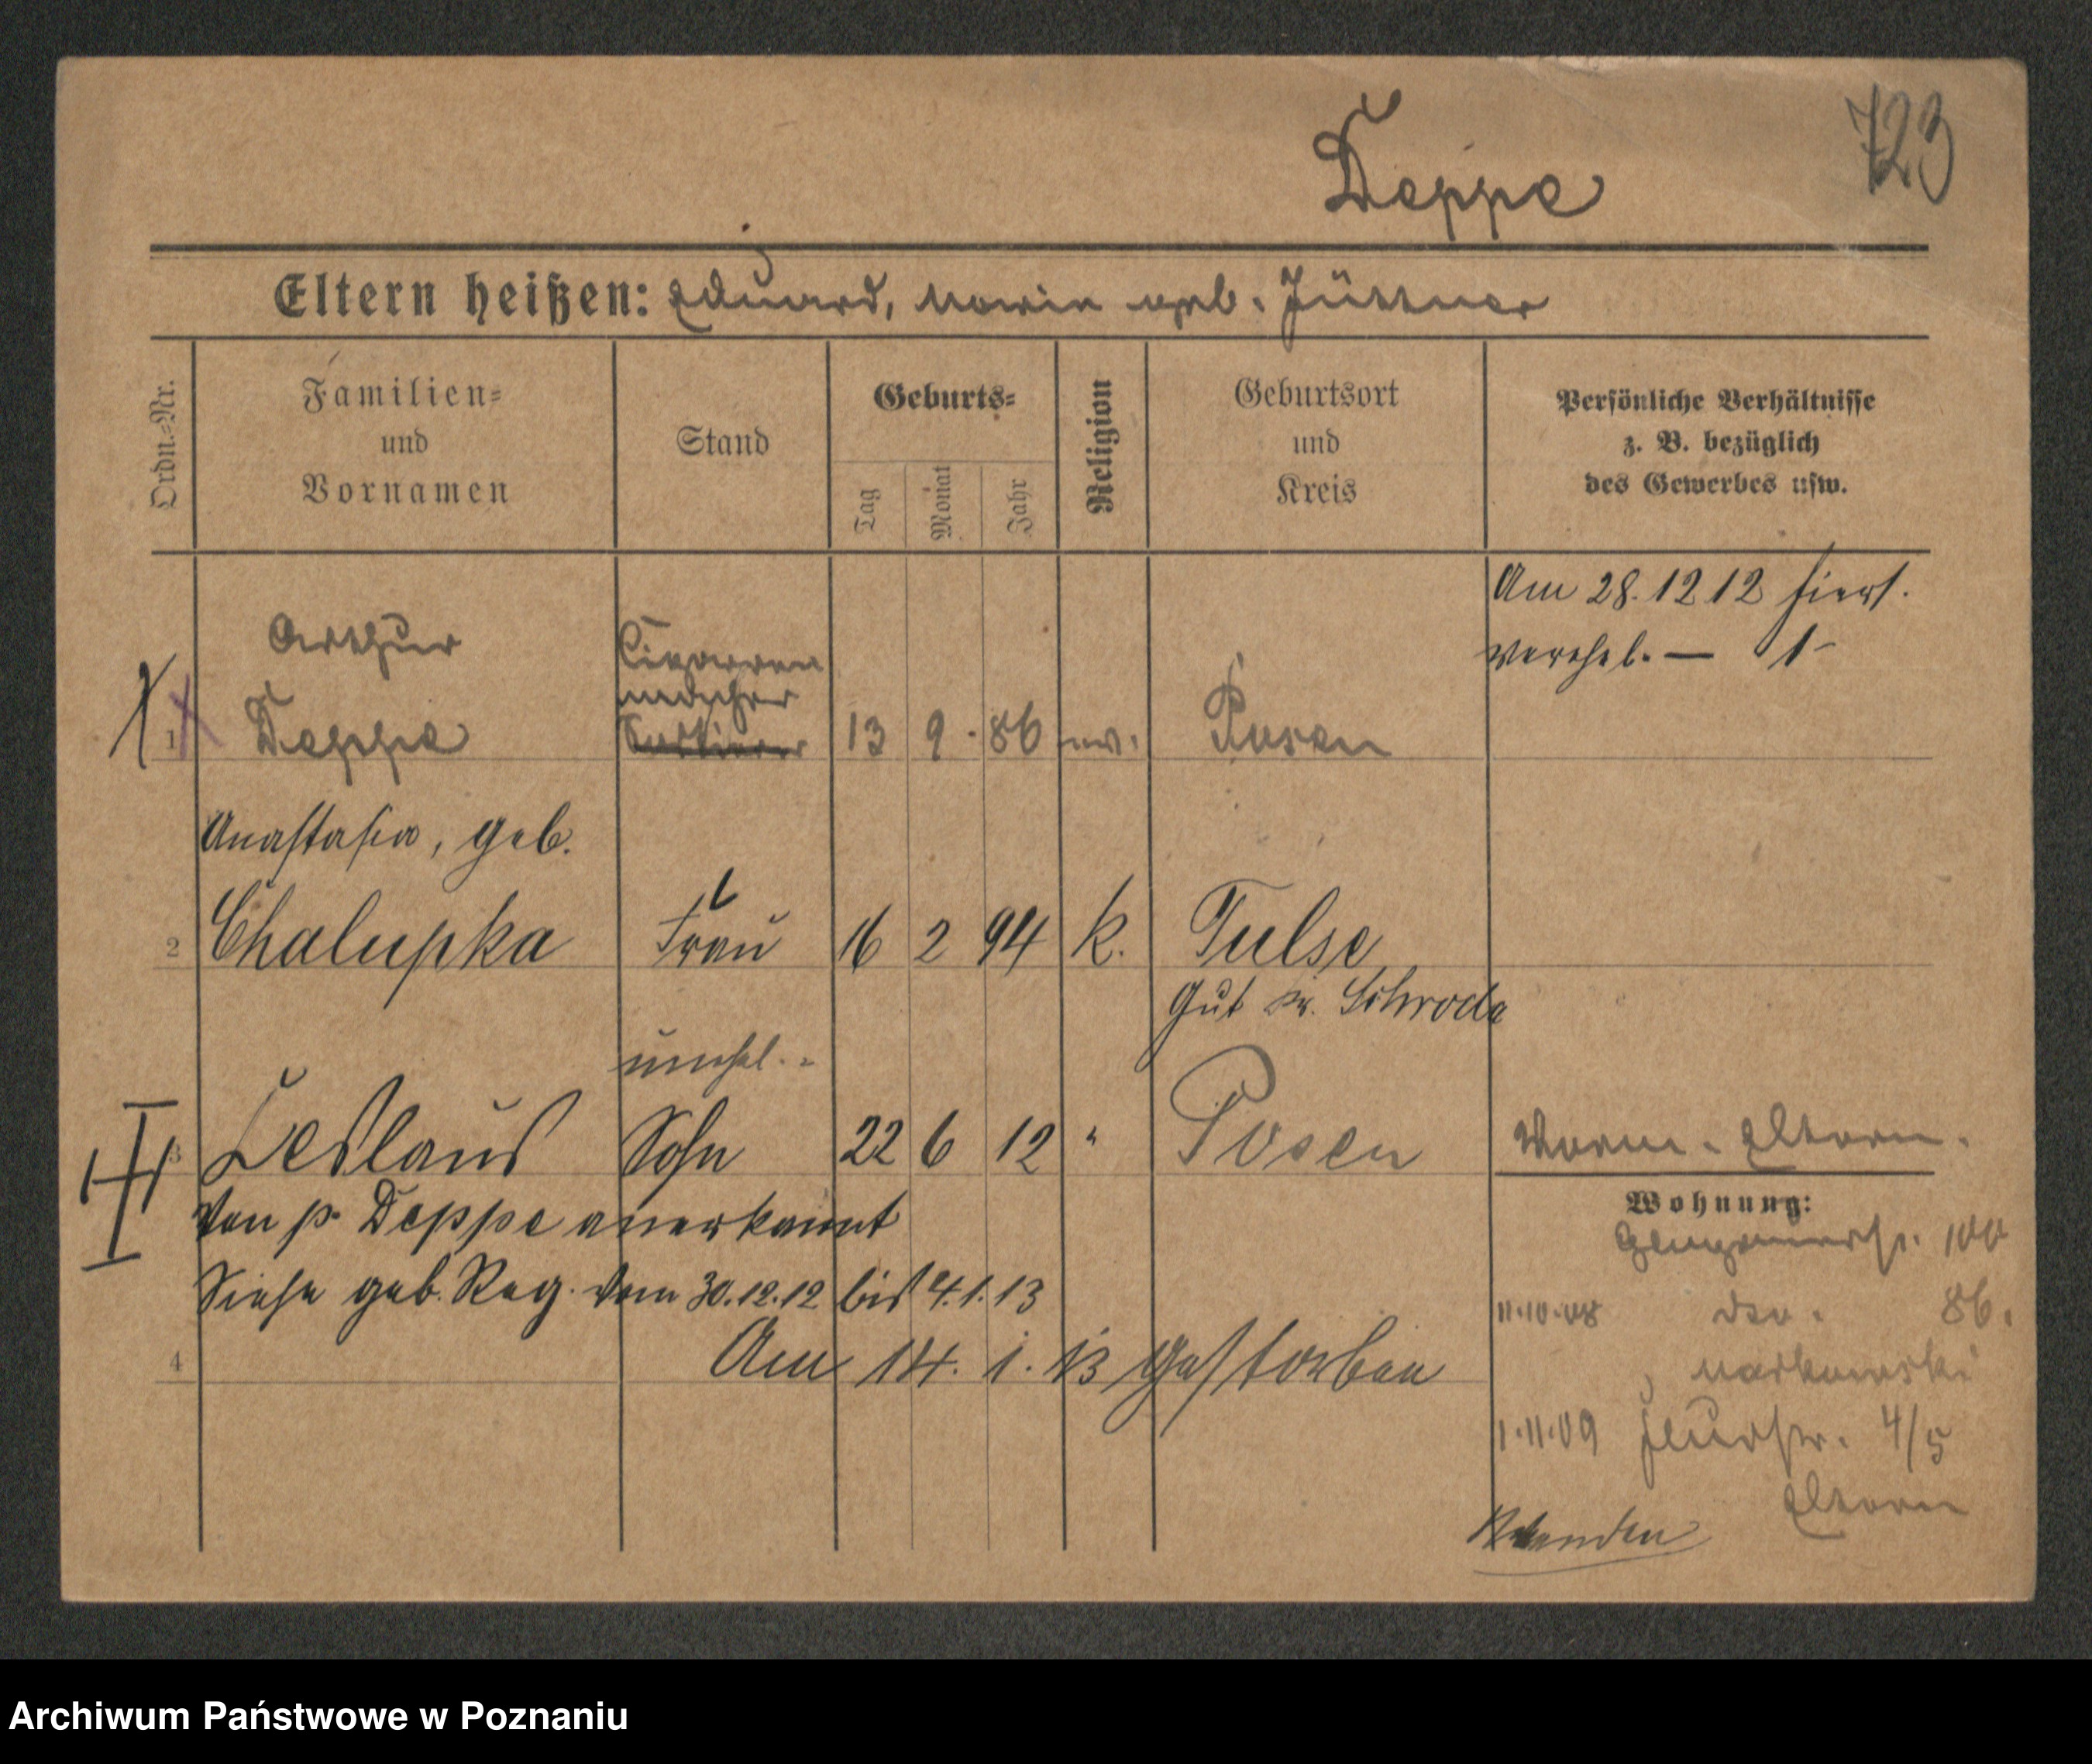 723
Deppe
Eltern heißen: Eduard, Maria geb. Jüttner
Ordn.-Nr.
Familien-
und
Vornamen
Stand
Geburts-
Tag
Monat
Jahr
Religion
Geburtsort
und
Kreis
Persönliche Verhältnisse
z. B. bezüglich
des Gewerbes usw.
Am 28.12 12 hiers.
verehel. — 1
Arthur
Cigarren
macher
1 Deppe Sortierer 13 9. 86 ev. Posen
Anastasia, geb.
2 Chalupka Frau 16 2 94 k. Tulse
Gut Kr. Schroda
unehel.
3 Ceslaus Sohn 22 6 12 " Posen
Von p. Deppe anerkannt
Siehe geb. Reg. vom 30.12.12 bis 4.1.13
4 Am 14. 1. 13 gestorben
Eltern.
Wohnung:
100
11.10.08 86.
Markowski
1.11.09 4/5
Eltern
Archiwum Państwowe w Poznaniu